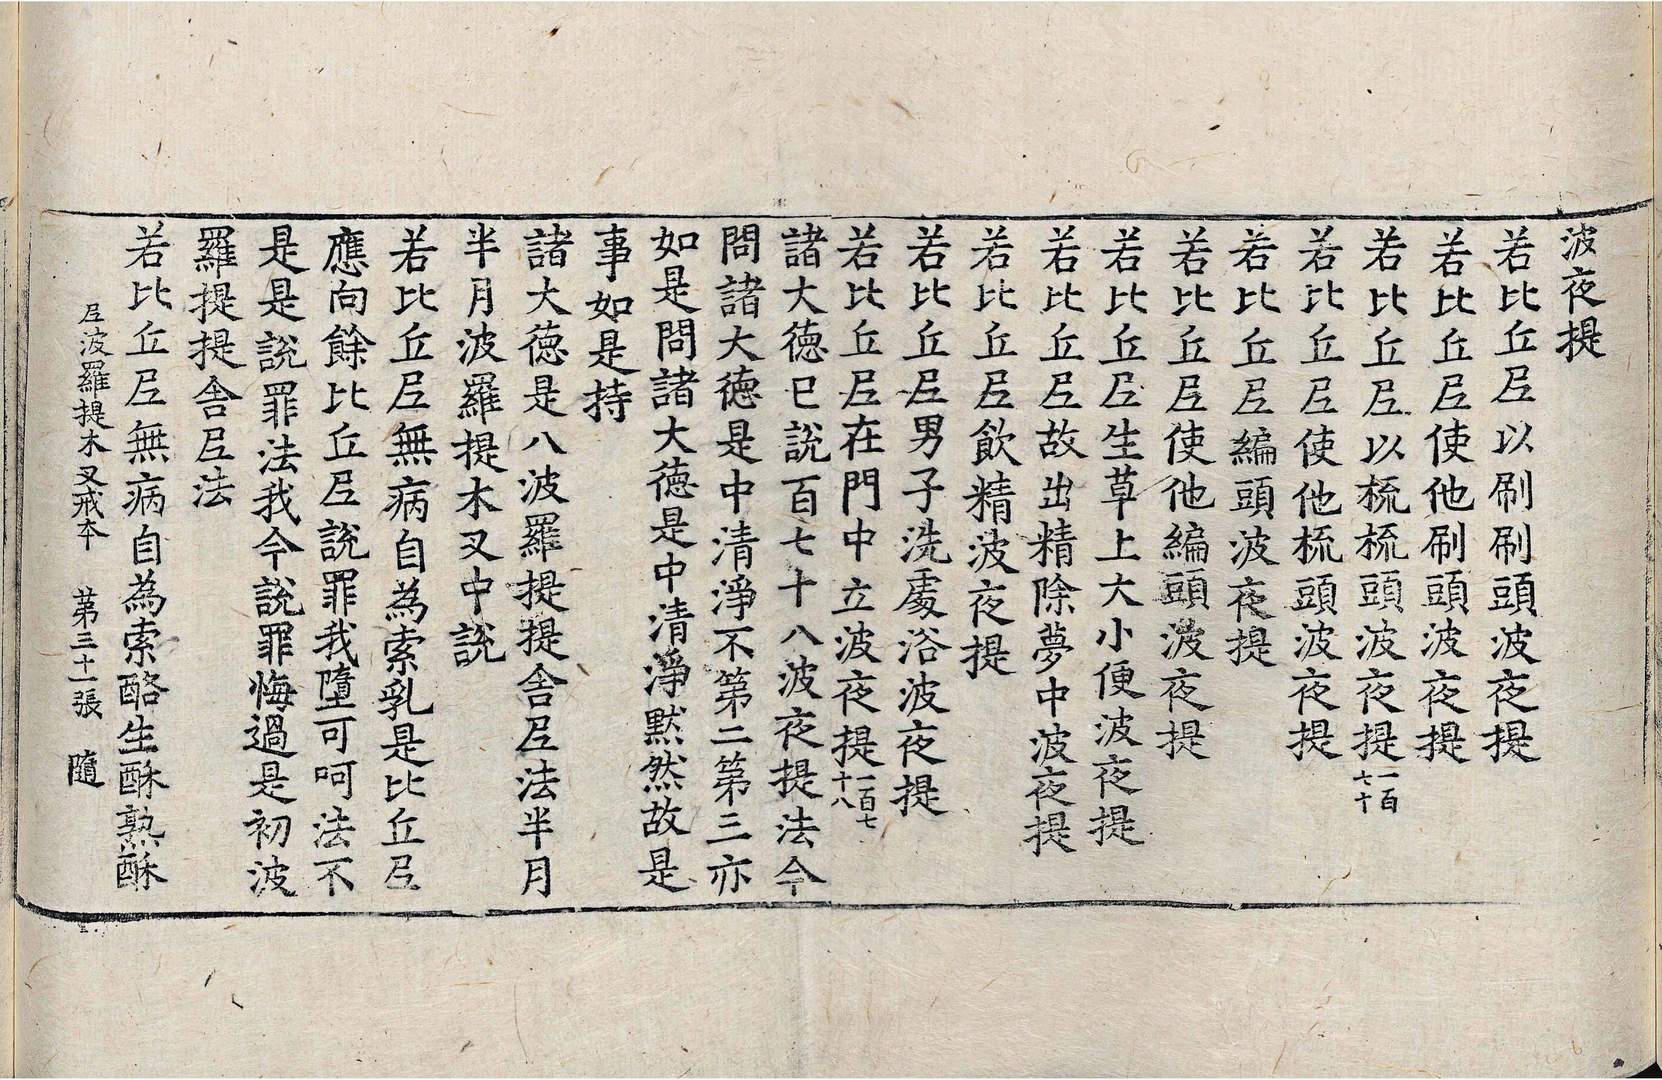 波夜提
若比丘尼以刷刷頭波夜提
若比丘尼使他刷頭波夜提
若比丘尼以梳梳頭波夜提一百七十
若比丘尼使他梳頭波夜提
若比丘尼編頭波夜提
若比丘尼使他編頭波夜提
若比丘尼生草上大小便波夜提
若比丘尼故出精除夢中波夜提
若比丘尼飲精波夜提
若比丘尼男子洗處浴波夜提
若比丘尼在門中立波夜提一百七十八
諸大德已說百七十八波夜提法今
問諸大德是中清淨不第二第三亦
如是問諸大德是中清淨默然故是
事如是持
諸大德是八波羅提提舍尼法半月
半月波羅提木叉中說
若比丘尼無病自為索乳是比丘尼
應向餘比丘尼說罪我墮可呵法不
是是說罪法我今說罪悔過是初波
羅提提舍尼法
若比丘尼無病自為索酪生酥熟酥
尼波羅提木叉戒本 第三十一張 隨